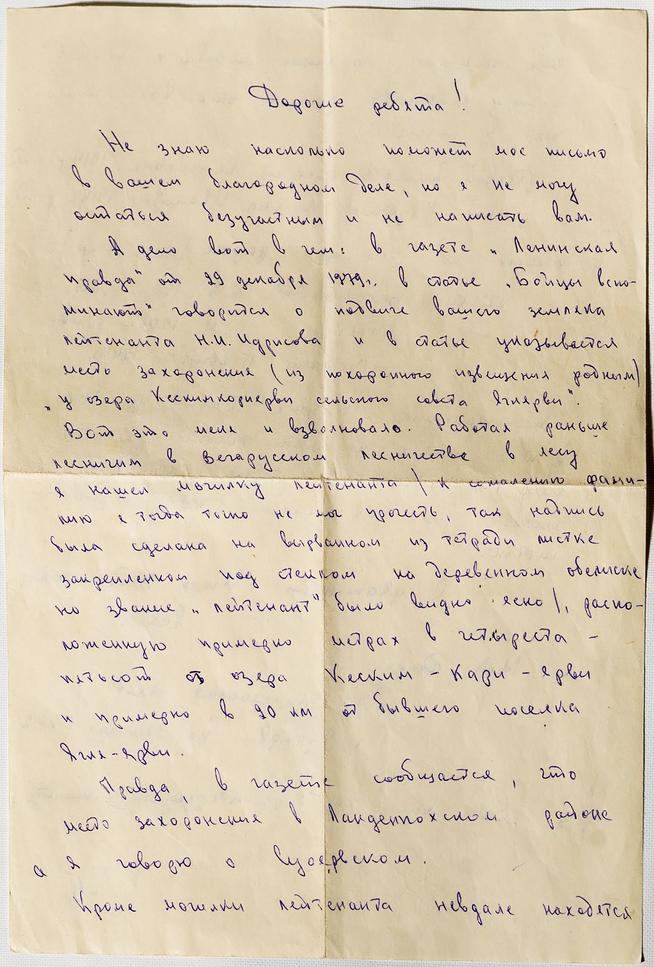 Дорогие ребята!
Не знаю насколько поможет мое письмо
в вашем благородном деле, но я не могу
остаться безучастным и не написать вам.
А дело вот в чем: в газете „Ленинская
правда" от 29 декабря 1979г. в статье „Бойцы вспо-
минают" говорится о подвиге вашего земляка
лейтенанта Н.И. Идрисова и в статье указывается
место захоронения (из похоронного извещения родным)
„у озера Кескинкориерви сельского совета Яглярви".
Вот это меня и взволновало. Работая раньше
лесничим в лесничестве в лесу
я нашел могилку лейтенанта / к сожалению фами-
лию я тогда точно не мог прочесть, так надпись
была сделана на вырванном из тетради листке
закрепленном под стеклом на деревенном обелиске
но звание „лейтенант" было видно ясно/, распо-
ложенную примерно метрах в четыреста -
пятьсот от озера Кеским - Кари - ярви
и примерно в 20 км от бывшего поселка
Ягля-ярви.
Правда, в газете сообщается, что
место захоронения в районе
а я говорю о
Кроме могилки лейтенанта невдале находятся